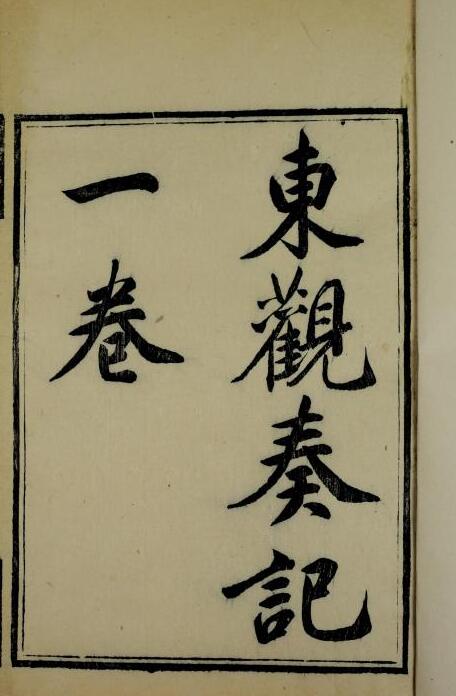 東觀奏記
一卷